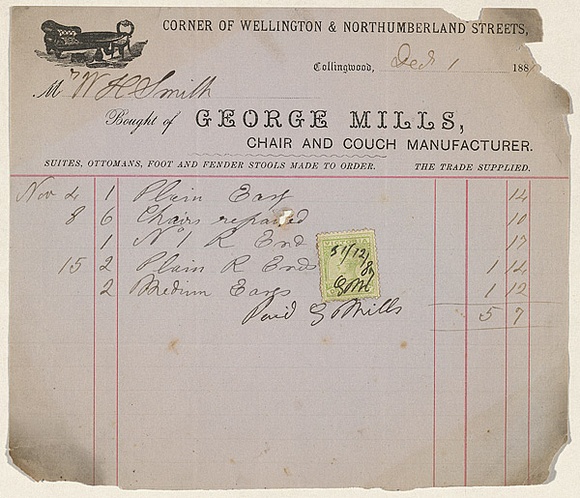 CORNER OF WELLINGTON & NORTHUMBERLAND STREETS,
Collingwood, Dec 1 188
Mr W H Smith
Bought of GEORGE MILLS,
CHAIR AND COUCH MANUFACTURER.
SUITES, OTTOMANS, FOOT AND FENDER STOOLS MADE TO ORDER. THE TRADE SUPPLIED.
Nov 4 1 Plain Easy 14
8 6 Chairs repaired 10
1 No 1 R End 17
15 2 Plain R Ends 1 14
2 Medium Easys 1 12
Paid G Mills 5 7
31/12/87
GM